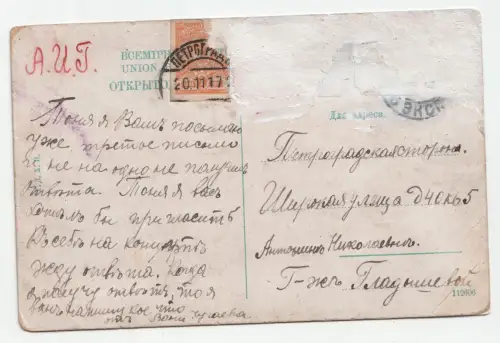 А.И.Г.
ВСЕМІРН
UNION
ОТКРЫТО
ПЕТРОГРАДЪ
20.11.17
Для адреса.
Тоня я Вамъ посылаю
уже третое письмо
и не на одно не получилъ
отвѣта. Тоня я васъ
хотѣлъ бы пригласить
къ себѣ на
жду отвѣта. Когда
я получу отвѣтъ, то я
вамъ напишу кое что
отъ Вани
Петроградская сторона.
Широкая улица д 40 кв 5
Антонинѣ Николаевнѣ.
Г-жѣ Гладышевой
112606